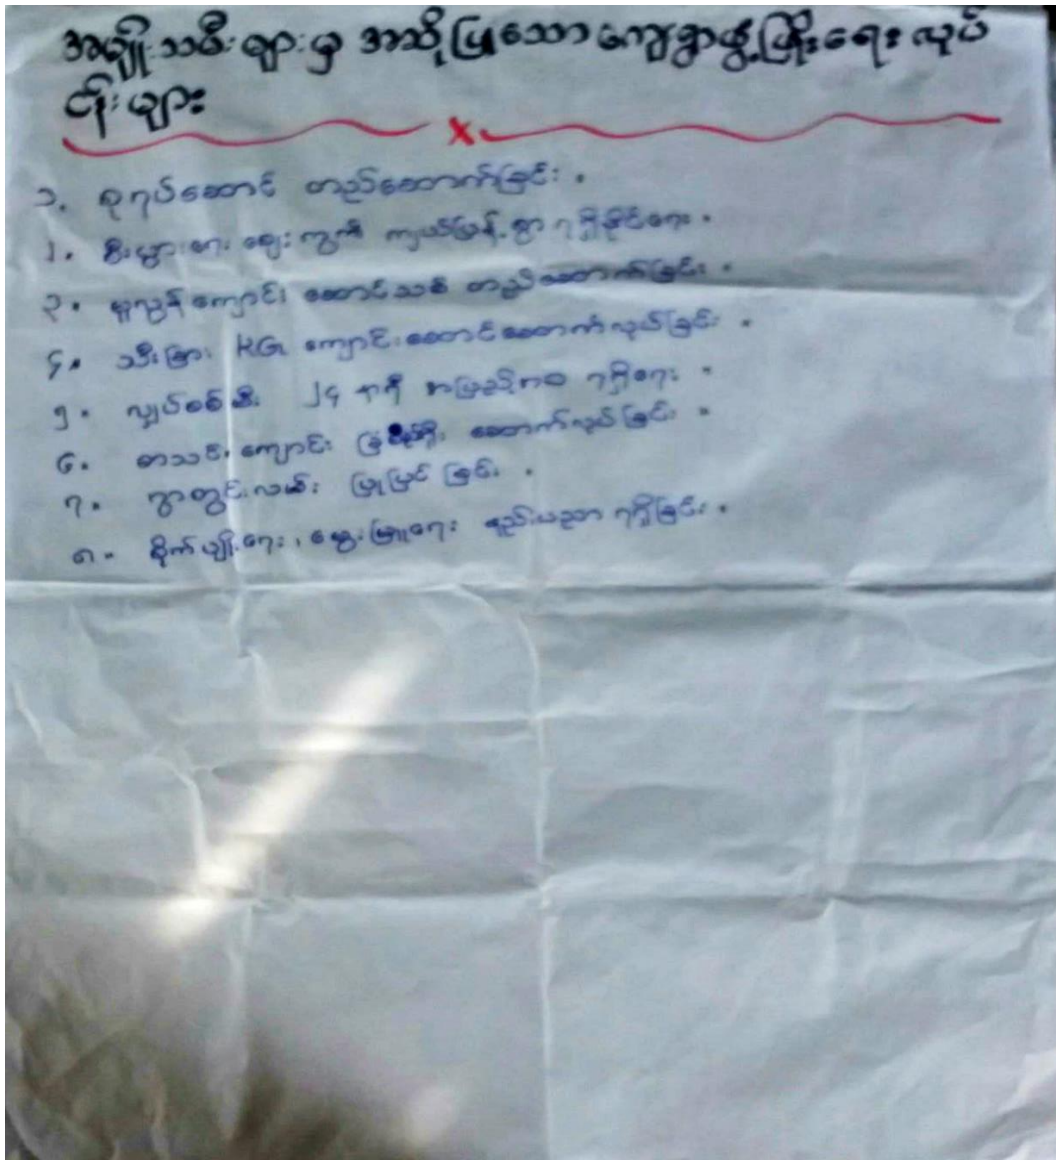 အမျိုးသမီးများမှ အဆိုပြုသော ကျေးရွာဖွံ့ဖြိုးရေး လုပ်
ငန်းများ
၁. စုရပ်ဆောင် တည်ဆောက်ခြင်း ။
၂. စီးပွားရေး ဈေးကွက် ကျယ်ပြန့်စွာ ရရှိနိုင်ရေး ။
၃. မူလွန်ကျောင်း ဆောင်သစ် တည်ဆောက်ခြင်း ။
၄. သီးခြား KG ကျောင်းဆောင်ဆောက်လုပ်ခြင်း ။
၅. လျှပ်စစ်မီး ၂၄ နာရီ အပြည့်အဝ ရရှိရေး ။
၆. စာသင်ကျောင်း ခြံစည်းရိုး ဆောက်လုပ်ခြင်း ။
၇. ရွာတွင်းလမ်း ပြုပြင်ခြင်း ။
၈. စိုက်ပျိုးရေး၊ မွေးမြူရေး နည်းပညာ ရရှိခြင်း ။